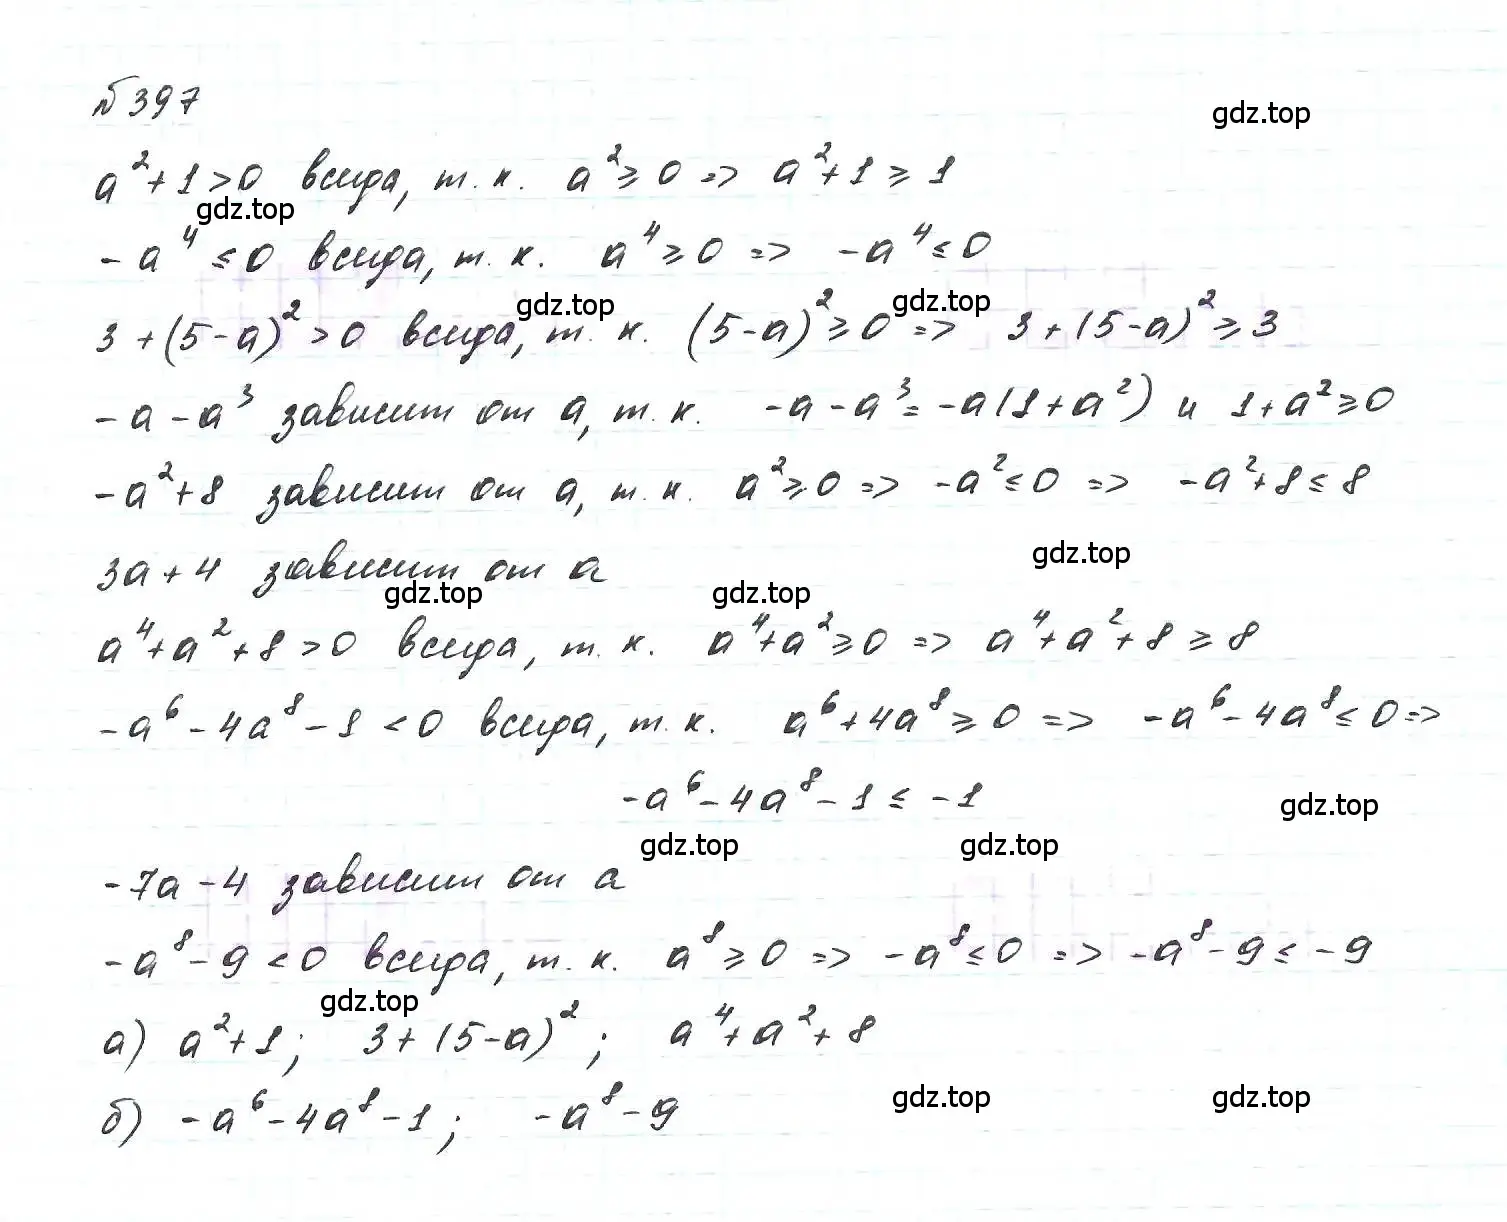 №397
gdz.top
a²+1>0 всегда, т. к. a²⩾0 => a²+1⩾1
gdz.top
-a⁴⩽0 всегда, т. к. a⁴⩾0 => -a⁴⩽0
gdz.top gdz.top
3+(5-a)²>0 всегда, т. к. (5-a)²⩾0 => 3+(5-a)²⩾3
-a-a³ зависит от a, т. к. -a-a³=-a(1+a²) и 1+a²⩾0
-a²+8 зависит от a, т. к. a²⩾0 => -a²⩽0 => -a²+8⩽8
gdz.top
3a+4 зависит от a
gdz.top gdz.top
a⁴+a²+8>0 всегда, т. к. a⁴+a²⩾0 => a⁴+a²+8⩾8
-a⁶-4a⁸-1<0 всегда, т. к. a⁶+4a⁸⩾0 => -a⁶-4a⁸⩽0 =>
-a⁶-4a⁸-1⩽-1
gdz.top
gdz.top gdz.top
-7a-4 зависит от a
-a⁸-9<0 всегда, т. к. a⁸⩾0 => -a⁸⩽0 => -a⁸-9⩽-9
gdz.top
а) a²+1; 3+(5-a)²; a⁴+a²+8
б) -a⁶-4a⁸-1; -a⁸-9
gdz.top gdz.top